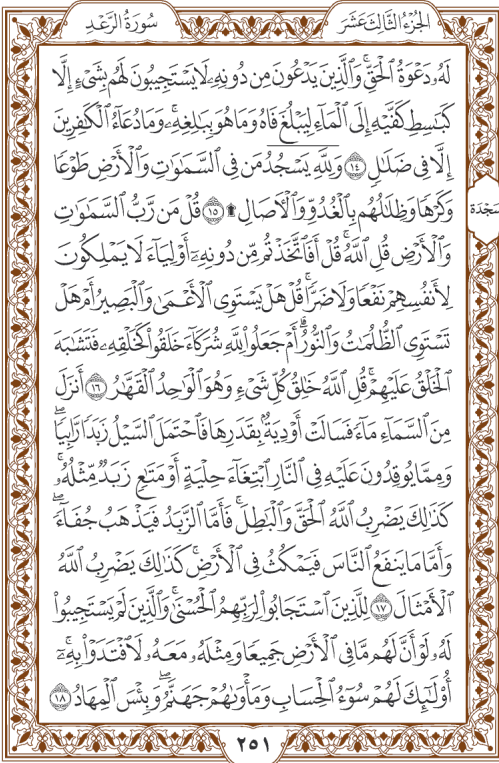 الجُزْءُ الثَّالِثَ عَشَرَ
سُورَةُ الرَّعْدِ
لَهُۥ دَعْوَةُ ٱلْحَقِّۚ وَٱلَّذِينَ يَدْعُونَ مِن دُونِهِۦ لَا يَسْتَجِيبُونَ لَهُم بِشَىْءٍ إِلَّا
كَبَـٰسِطِ كَفَّيْهِ إِلَى ٱلْمَآءِ لِيَبْلُغَ فَاهُ وَمَا هُوَ بِبَـٰلِغِهِۦۚ وَمَا دُعَآءُ ٱلْكَـٰفِرِينَ
إِلَّا فِى ضَلَـٰلٍ ١٤ وَلِلَّهِ يَسْجُدُ مَن فِى ٱلسَّمَـٰوَٰتِ وَٱلْأَرْضِ طَوْعًا
وَكَرْهًا وَظِلَـٰلُهُم بِٱلْغُدُوِّ وَٱلْـَٔاصَالِ ۩ ١٥ قُلْ مَن رَّبُّ ٱلسَّمَـٰوَٰتِ
سَجْدَة
وَٱلْأَرْضِ قُلِ ٱللَّهُۚ قُلْ أَفَٱتَّخَذْتُم مِّن دُونِهِۦٓ أَوْلِيَآءَ لَا يَمْلِكُونَ
لِأَنفُسِهِمْ نَفْعًا وَلَا ضَرًّاۚ قُلْ هَلْ يَسْتَوِى ٱلْأَعْمَىٰ وَٱلْبَصِيرُ أَمْ هَلْ
تَسْتَوِى ٱلظُّلُمَـٰتُ وَٱلنُّورُۗ أَمْ جَعَلُوا۟ لِلَّهِ شُرَكَآءَ خَلَقُوا۟ كَخَلْقِهِۦ فَتَشَـٰبَهَ
ٱلْخَلْقُ عَلَيْهِمْۚ قُلِ ٱللَّهُ خَـٰلِقُ كُلِّ شَىْءٍ وَهُوَ ٱلْوَٰحِدُ ٱلْقَهَّـٰرُ ١٦ أَنزَلَ
مِنَ ٱلسَّمَآءِ مَآءً فَسَالَتْ أَوْدِيَةٌۢ بِقَدَرِهَا فَٱحْتَمَلَ ٱلسَّيْلُ زَبَدًا رَّابِيًاۖ
وَمِمَّا يُوقِدُونَ عَلَيْهِ فِى ٱلنَّارِ ٱبْتِغَآءَ حِلْيَةٍ أَوْ مَتَـٰعٍ زَبَدٌ مِّثْلُهُۥۚ
كَذَٰلِكَ يَضْرِبُ ٱللَّهُ ٱلْحَقَّ وَٱلْبَـٰطِلَۚ فَأَمَّا ٱلزَّبَدُ فَيَذْهَبُ جُفَآءًۖ
وَأَمَّا مَا يَنفَعُ ٱلنَّاسَ فَيَمْكُثُ فِى ٱلْأَرْضِۚ كَذَٰلِكَ يَضْرِبُ ٱللَّهُ
ٱلْأَمْثَالَ ١٧ لِلَّذِينَ ٱسْتَجَابُوا۟ لِرَبِّهِمُ ٱلْحُسْنَىٰۚ وَٱلَّذِينَ لَمْ يَسْتَجِيبُوا۟
لَهُۥ لَوْ أَنَّ لَهُم مَّا فِى ٱلْأَرْضِ جَمِيعًا وَمِثْلَهُۥ مَعَهُۥ لَٱفْتَدَوْا۟ بِهِۦٓۚ
أُو۟لَـٰٓئِكَ لَهُمْ سُوٓءُ ٱلْحِسَابِ وَمَأْوَىٰهُمْ جَهَنَّمُۖ وَبِئْسَ ٱلْمِهَادُ ١٨
٢٥١